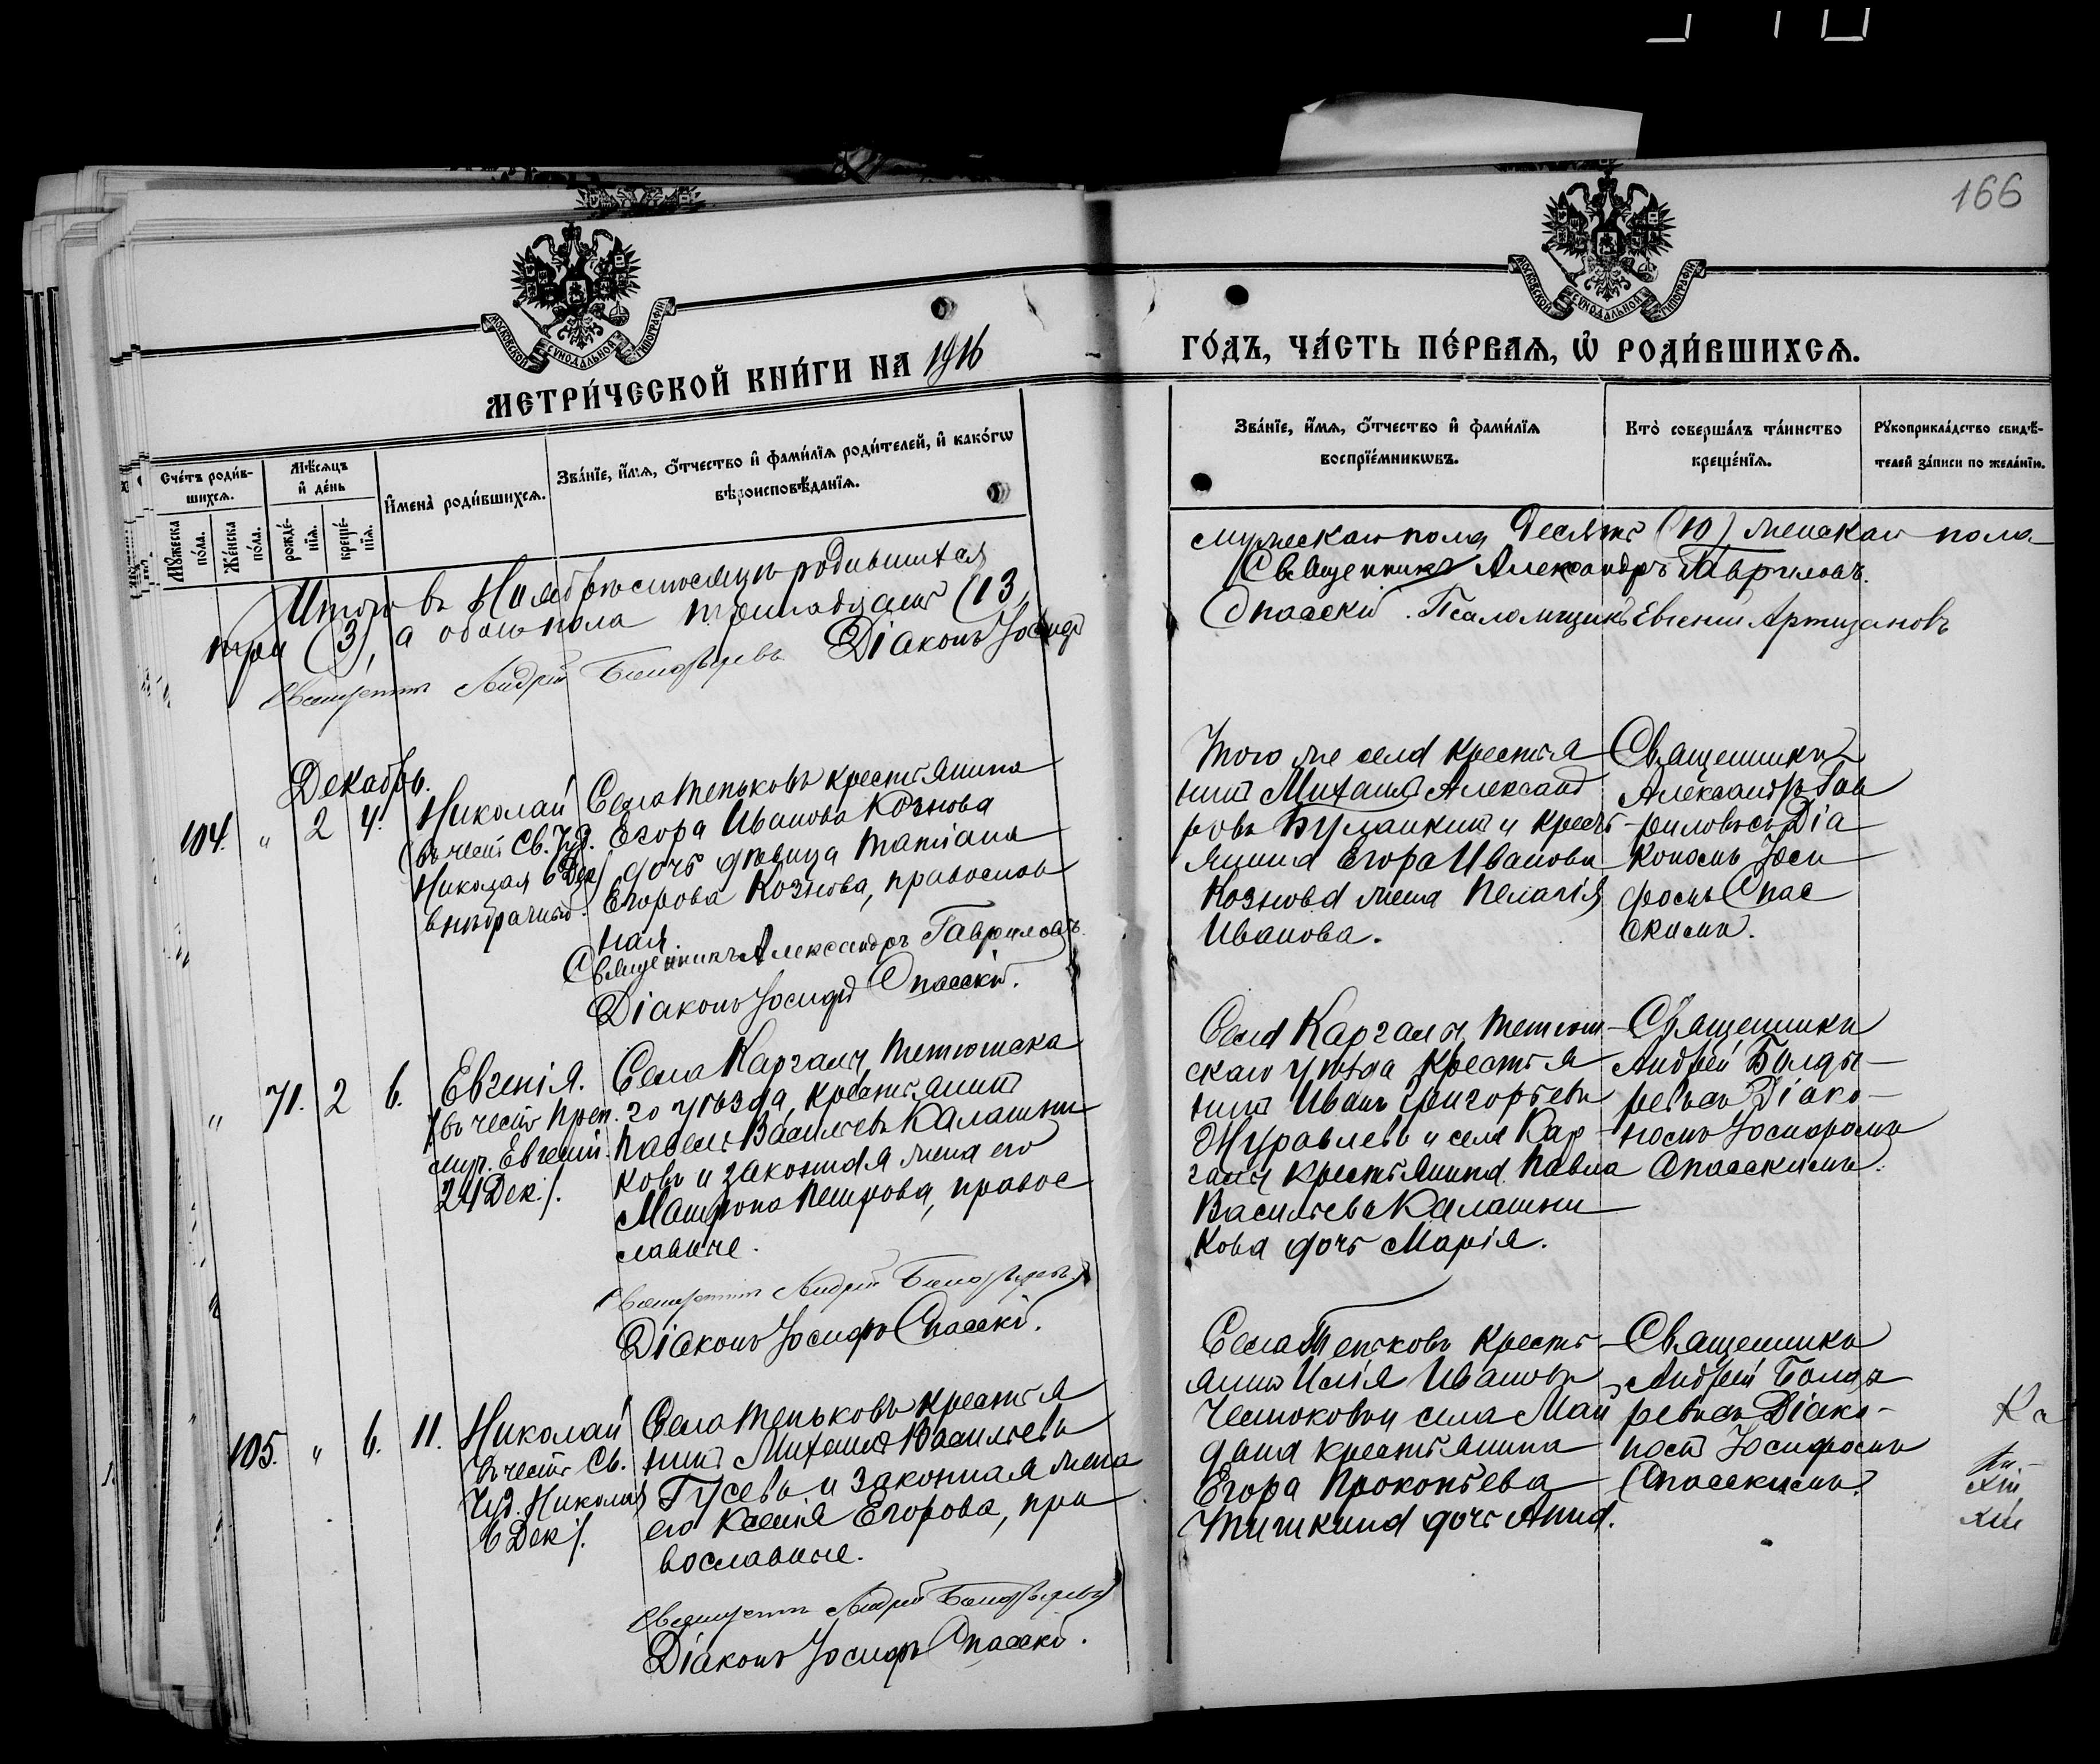 166
МОСКОВСКОЙ СѴНОДАЛЬНОЙ ТИПОГРАФІИ
МОСКОВСКОЙ СѴНОДАЛЬНОЙ ТИПОГРАФІИ
МЕТРИ́ЧЕСКОЙ КНИ́ГИ НА 1916
ГО́ДЪ, ЧА́СТЬ ПЕ́РВАѦ, Ѡ҆ РОДИ́ВШИХСѦ.
Сче́тъ роди́в-
шихсѧ.
Мꙋ́жеска
по́ла.
Же́нска
по́ла.
Мѣ́сѧцъ
и҆ де́нь
рожде́-
нїѧ.
креще́-
нїѧ.
И҆мена̀ роди́вшихсѧ.
Зва́нїе, и҆́мѧ, ѻ҆́тчество и҆ фами́лїѧ роди́телей, и҆ како́гѡ
вѣроисповѣ́данїѧ.
Зва́нїе, и҆́мѧ, ѻ҆́тчество и҆ фами́лїѧ
воспрїе́мникѡвъ.
Кто̀ соверша́лъ та́инство
креще́нїѧ.
Рꙋкоприкла́дство свидѣ́-
телей за́писи по жела́нїю.
Итого въ Ноябрѣ мѣсяцѣ родившихся
три (3), а обоего пола тринадцать (13
Священникъ Андрей Діаконъ Іосифъ
мужескаго пола десять (10) женскаго пола
Священникъ Александръ Гавриловъ.
Спасскій. Псаломщикъ Евгеній Артизановъ
Декабрь.
104. " 2 4.
Николай
(въ честь Св. Чуд.
Николая 6 Дек.)
внѣбрачный.
Села Теньковъ крестьянина
Егора Иванова Кознова
дочь дѣвица Татіана
Егорова Кознова, православ
ная.
Священникъ Александръ Гавриловъ.
Діаконъ Іосифъ Спасскій.
Того же села крестья
нинъ Михаилъ Александ
ровъ и кресть
янина Егора Иванова
Кознова жена Пелагія
Иванова.
Священникъ
Александръ Гав
риловъ съ Діа
кономъ Іоси
фомъ Спас
скимъ.
" 71. 2 6.
Евгенія.
(въ честь Преп.
муч. Евгеніи
24 Дек.).
Села Каргалы, Тетюшска
го уѣзда, крестьянинъ
Павелъ Васильевъ Калашни
ковъ и законная жена его
Матрона Петрова, правос
лавные.
Священникъ Андрей
Діаконъ Іосифъ Спасскій.
Села Каргалы, Тетюш
скаго уѣзда крестья
нинъ Иванъ Григорьевъ
Журавлевъ и села Кар
галы крестьянина Павла
Васильева Калашни
кова дочь Марія.
Священникъ
Андрей Болды
ревъ съ Діако-
номъ Іосифомъ
Спасскимъ.
105. " 6. 11.
Николай
въ честь Св.
Чуд. Николая
6 Дек.).
Села Теньковъ крестья
нинъ Михаилъ Васильевъ
Гусевъ и законная жена
его Ксенія Егорова, пра
вославные.
Священникъ Андрей
Діаконъ Іосифъ Спасскій.
Села Теньковъ кресть
янинъ Илія Ивановъ
Честоковъ и села Май
дана крестьянина
Егора Прокопьева
Тишкина дочь Анна.
Священникъ
Андрей Болды
ревъ съ Діако-
номъ Іосифомъ
Спасскимъ.